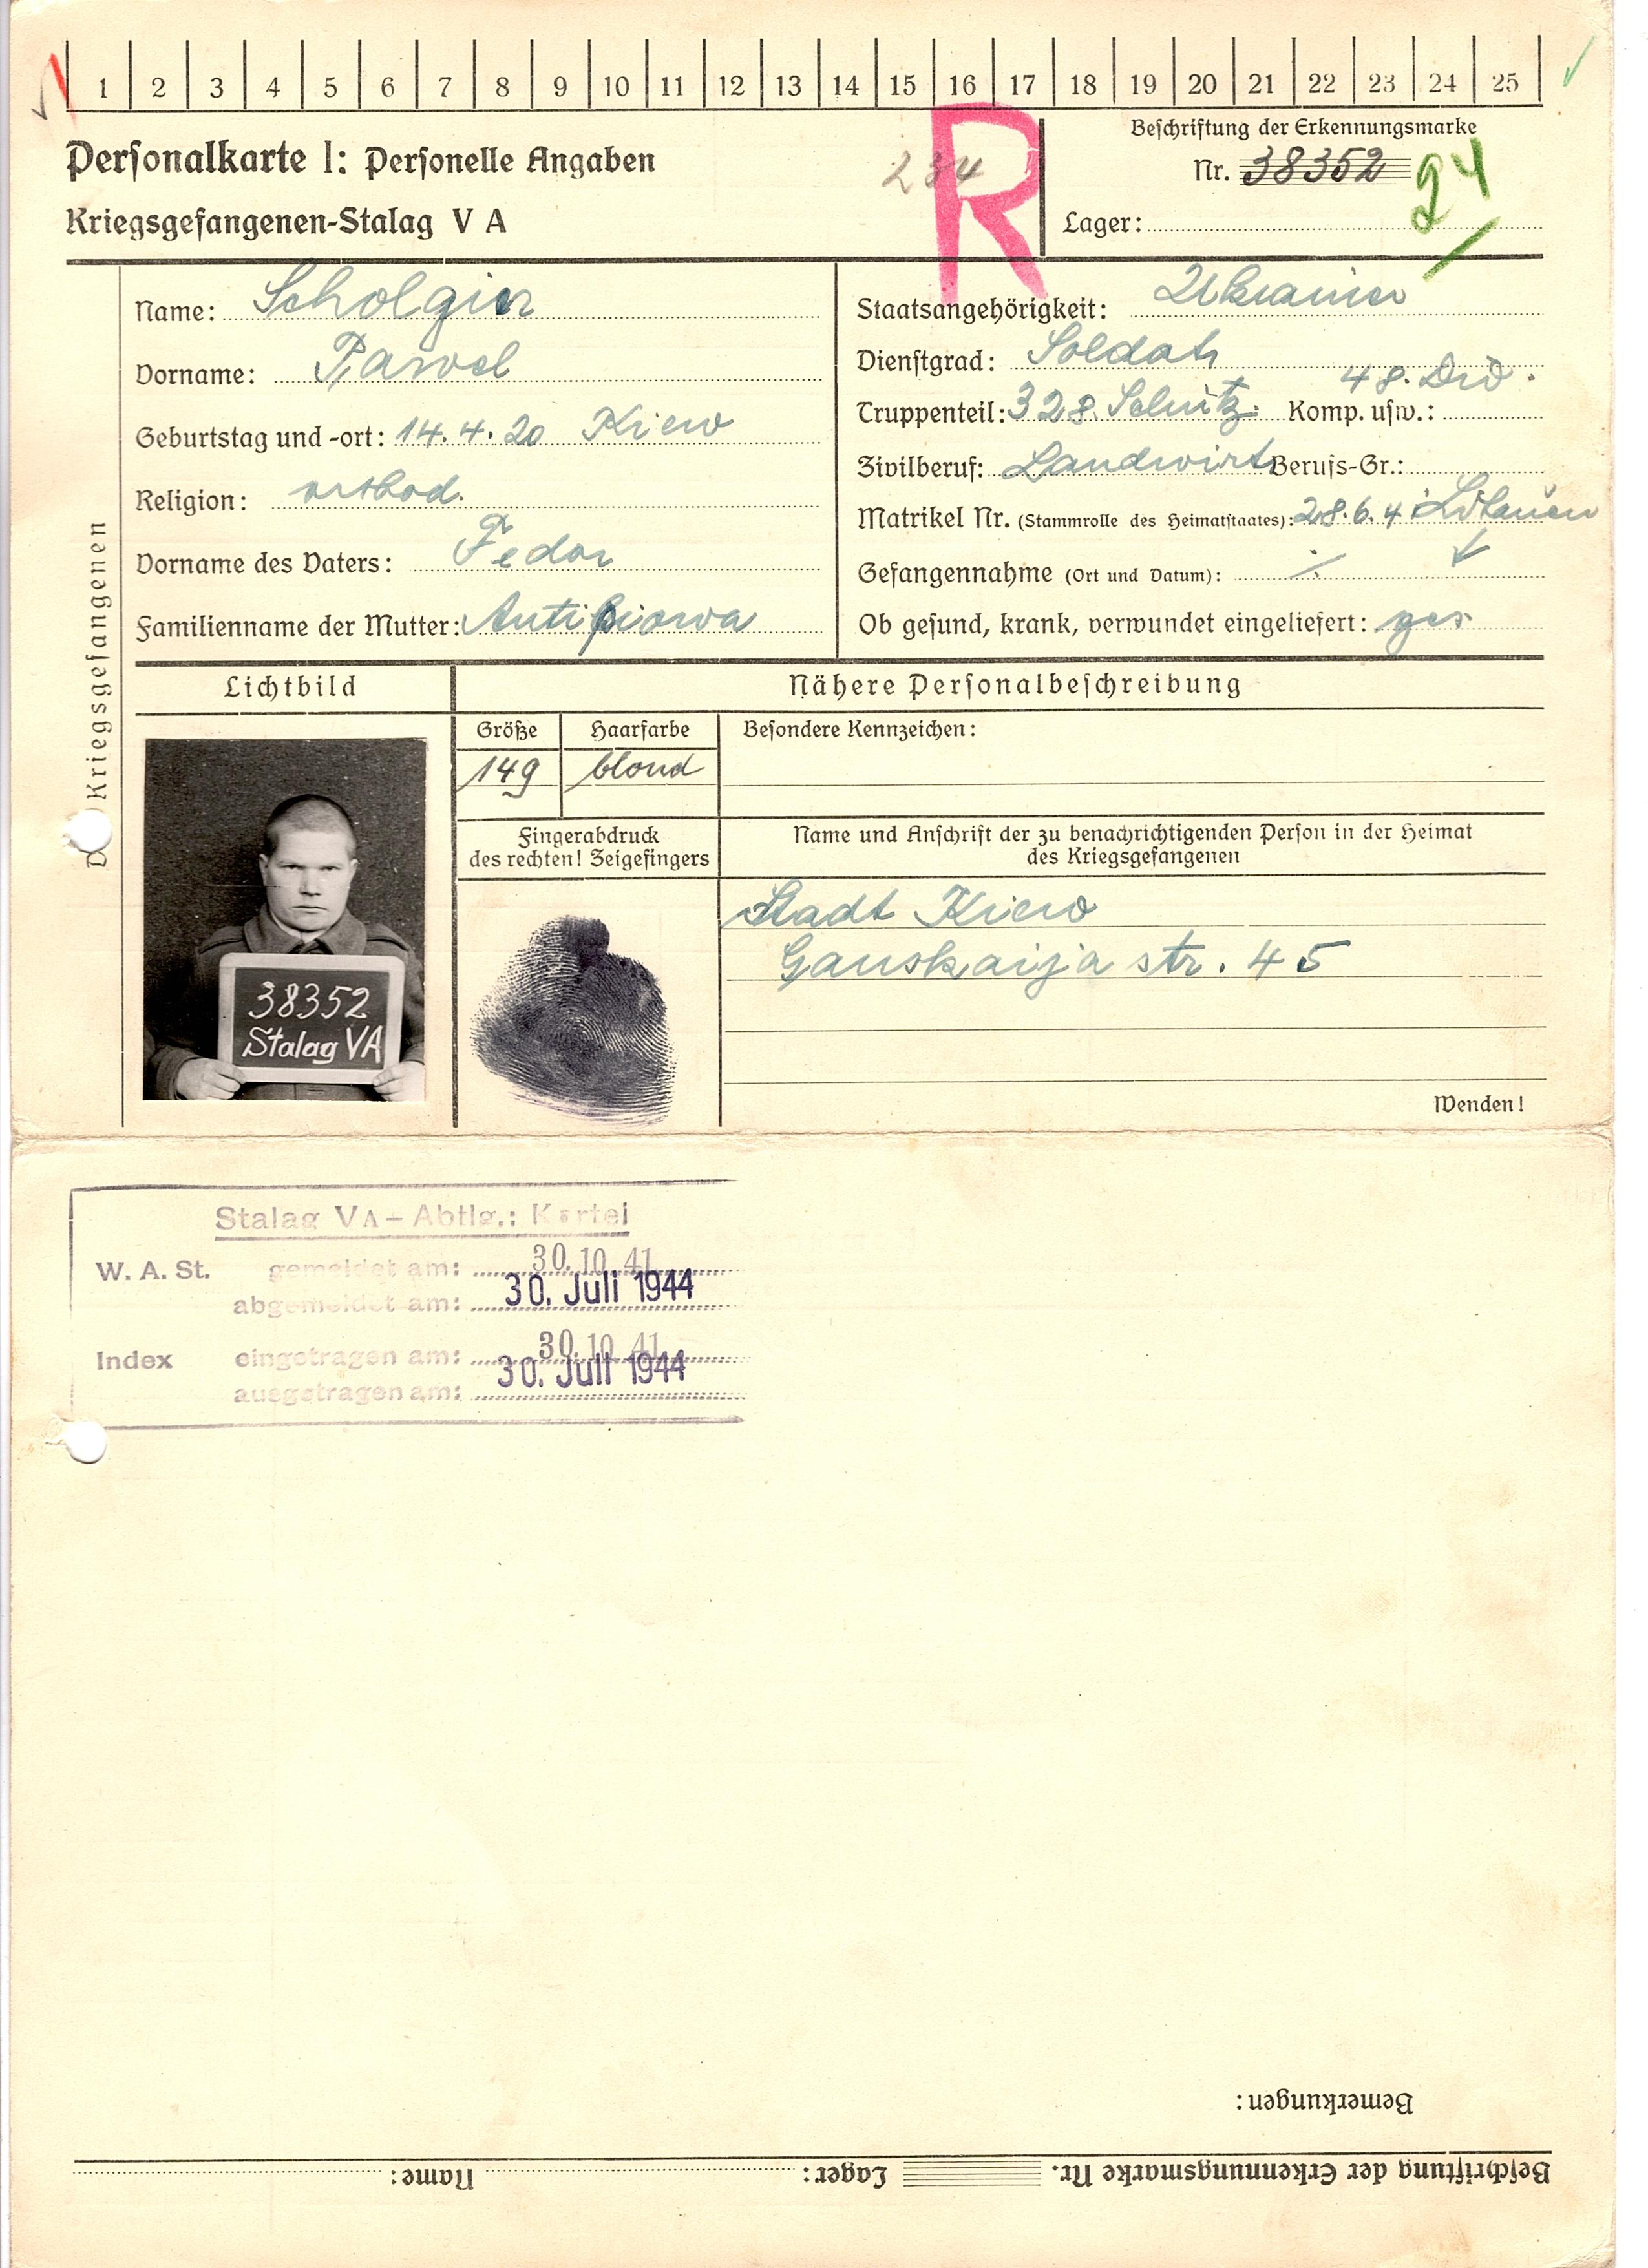 1 2 3 4 5 6 7 8 9 10 11 12 13 14 15 16 17 18 19 20 21 22 23 24 25
Personalkarte I: Personelle Angaben
Kriegsgefangenen-Stalag V A
234
R
Beschriftung der Erkennungsmarke
Nr. 38352
94
Lager:
Des Kriegsgefangenen
Name: Scholgin
Vorname: Pawel
Geburtstag und -ort: 14.4.20 Kiew
Religion: orthod.
Vorname des Vaters: Fedor
Familienname der Mutter:
Staatsangehörigkeit: Ukrainer
Dienstgrad: Soldat
48. Div.
Truppenteil: 328. Schütz. Komp. usw.:
Zivilberuf: Landwirt Berufs-Gr.:
Matrikel Nr. (Stammrolle des Heimatstaates): 28.6.41 Litauen
Gefangennahme (Ort und Datum):
Ob gesund, krank, verwundet eingeliefert: ges.
Lichtbild
Nähere Personalbeschreibung
Größe Haarfarbe Besondere Kennzeichen:
149 blond
Fingerabdruck
des rechten! Zeigefingers
Name und Anschrift der zu benachrichtigenden Person in der Heimat
des Kriegsgefangenen
Stadt Kiew
Ganskaija str. 45
38352
Stalag VA
Wenden!
Stalag VA – Abtlg.: Kartei
W. A. St. gemeldet am: 30.10.41
abgemeldet am: 30. Juli 1944
Index eingetragen am: 30.10.41
ausgetragen am: 30. Juli 1944
Bemerkungen:
Beschriftung der Erkennungsmarke Nr. Lager: Name: